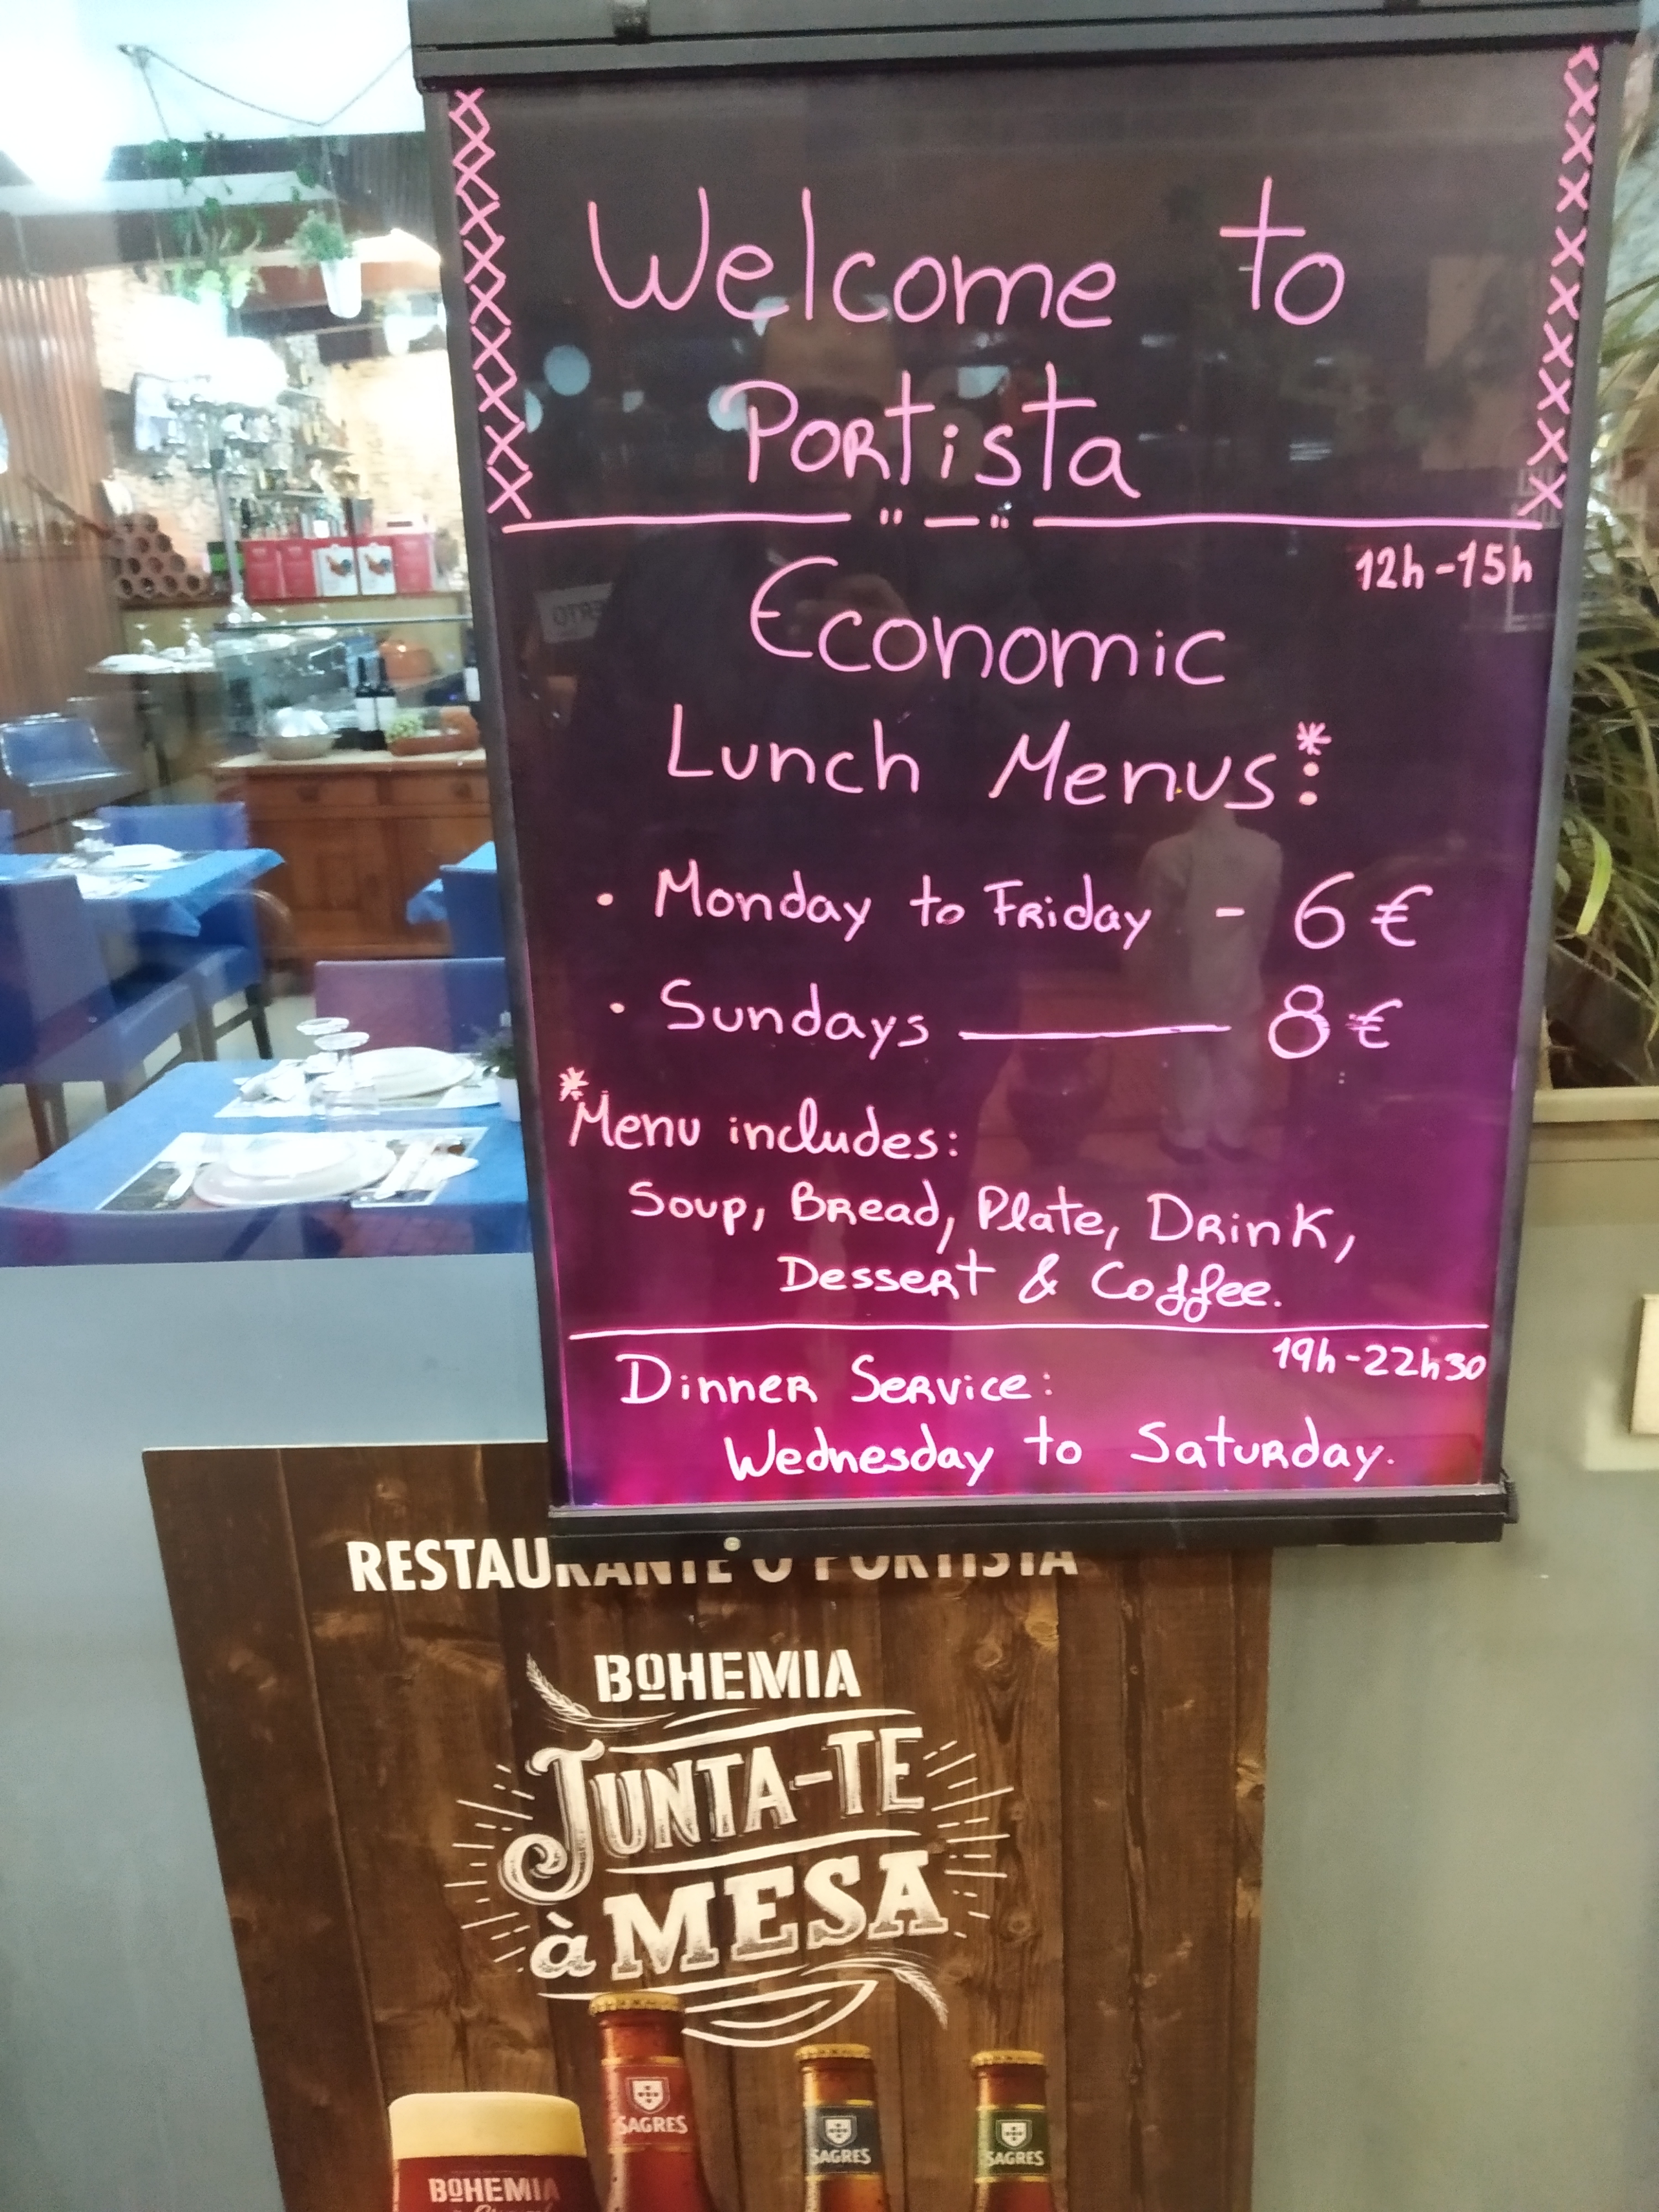 Welcome to
Portista
12h-15h
Economic
Lunch Menus*:
• Monday to Friday - 6€
• Sundays — 8€
*Menu includes:
Soup, Bread, Plate, Drink,
Dessert & Coffee.
19h-22h30
Dinner Service:
Wednesday to Saturday.
RESTAURANTE O PORTISTA
BOHEMIA
JUNTA-TE
à MESA
SAGRES
SAGRES
SAGRES
BOHEMIA